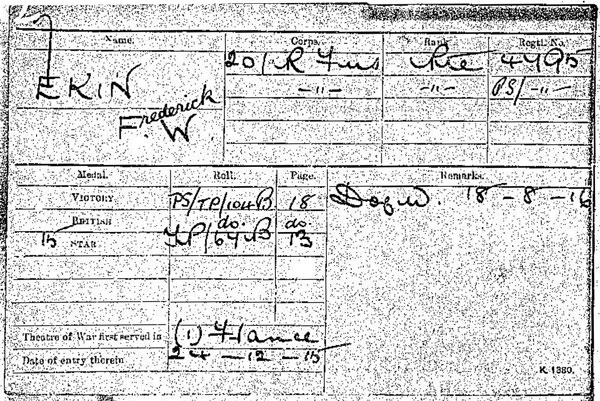 Name. Corps. Rank. Regtl. No.
EKIN 20/R Fus Pte 4495
Frederick —"— —"— PS/—"—
F. W.
Medal. Roll. Page. Remarks.
VICTORY PS/TP/104B 18 D of W. 18-8-16
BRITISH do. do
15 STAR TP/64B 13
Theatre of War first served in (1) France
Date of entry therein 24-12-15
K. 1380.